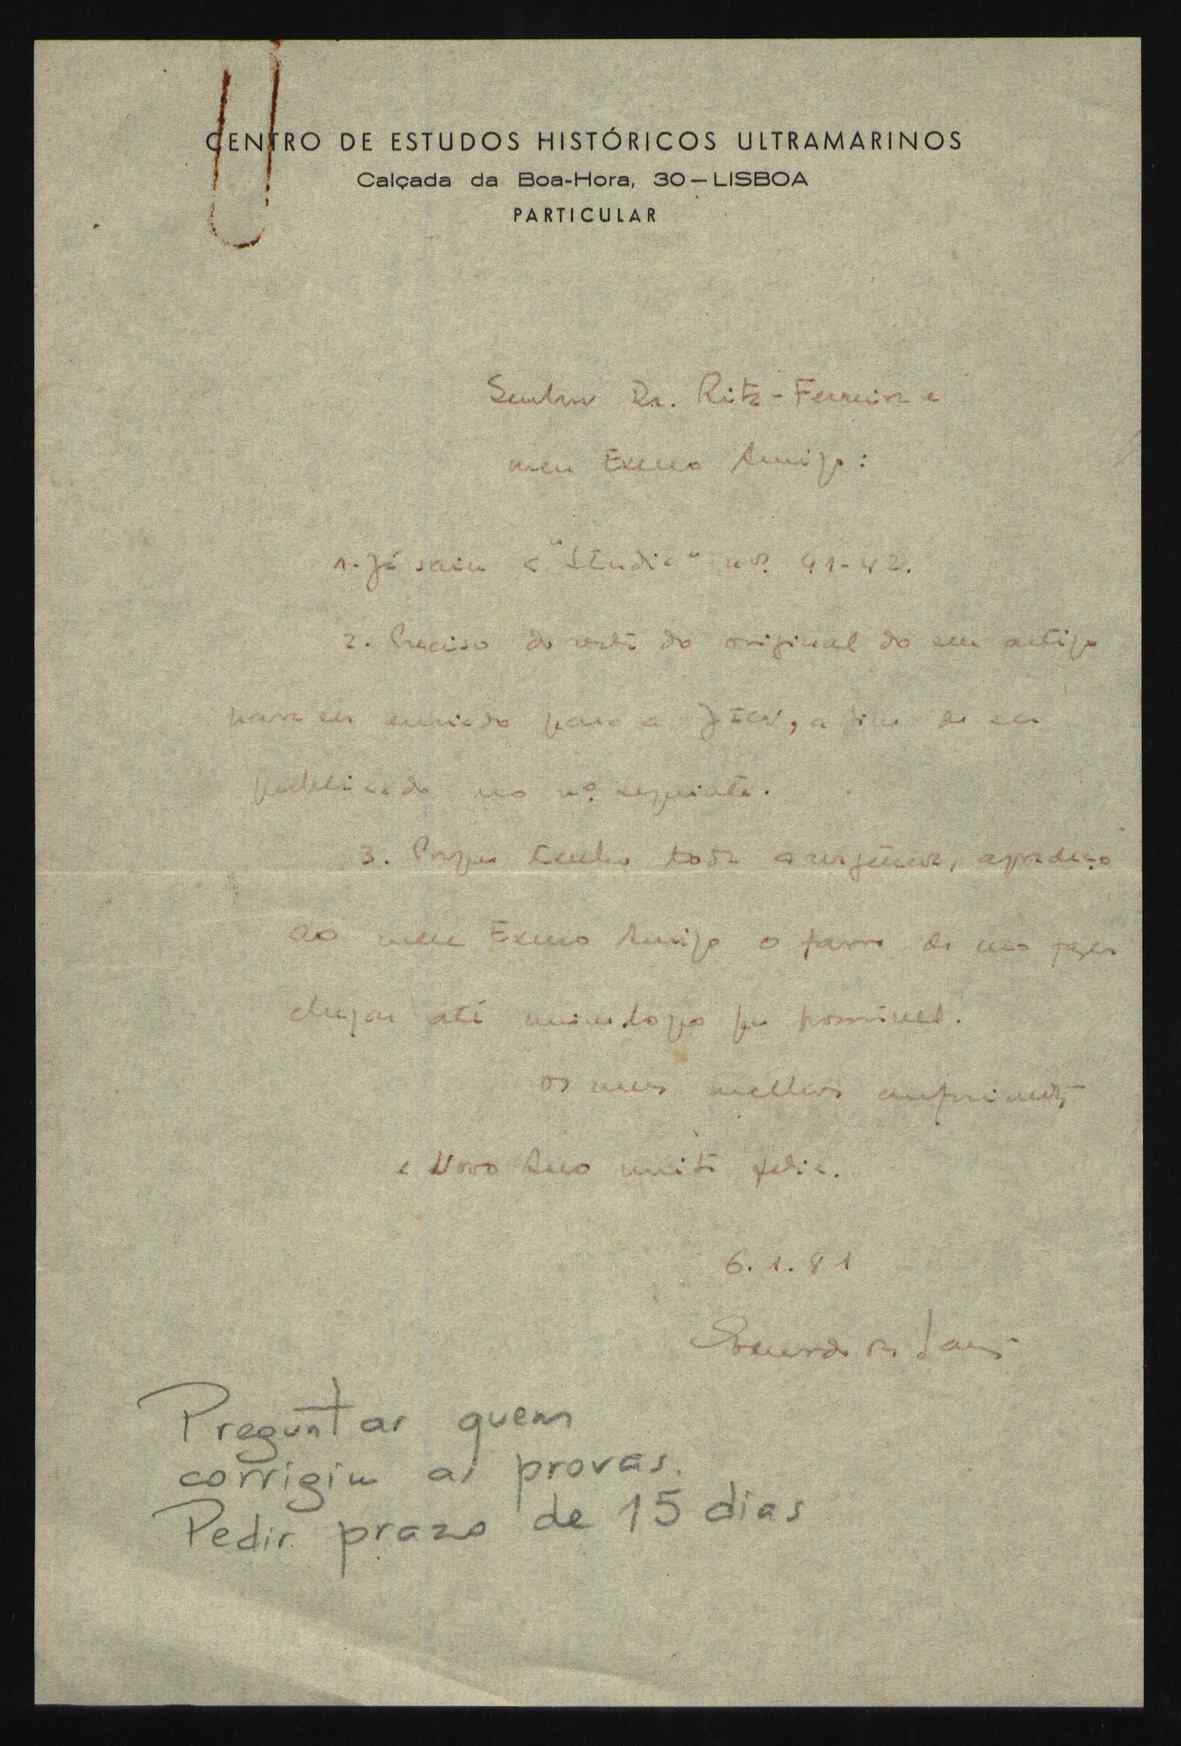 CENTRO DE ESTUDOS HISTÓRICOS ULTRAMARINOS
Calçada da Boa-Hora, 30 — LISBOA
PARTICULAR
Senhor Dr. Rita-Ferreira e
meu Exmo Amigo:
1. Já saiu a "Studia" nº. 41-42.
2. Preciso do resto do original do seu artigo
para ser enviado para a , a fim de ser
publicado no nº seguinte.
3. Porque tenho toda a urgência, agradeço
ao meu Exmo Amigo o favor de fazer
chegar até mim logo possível.
Os meus melhores cumprimentos
e Novo Ano muito feliz.
6.1.81
Preguntar quem
corrigiu as provas.
Pedir prazo de 15 dias